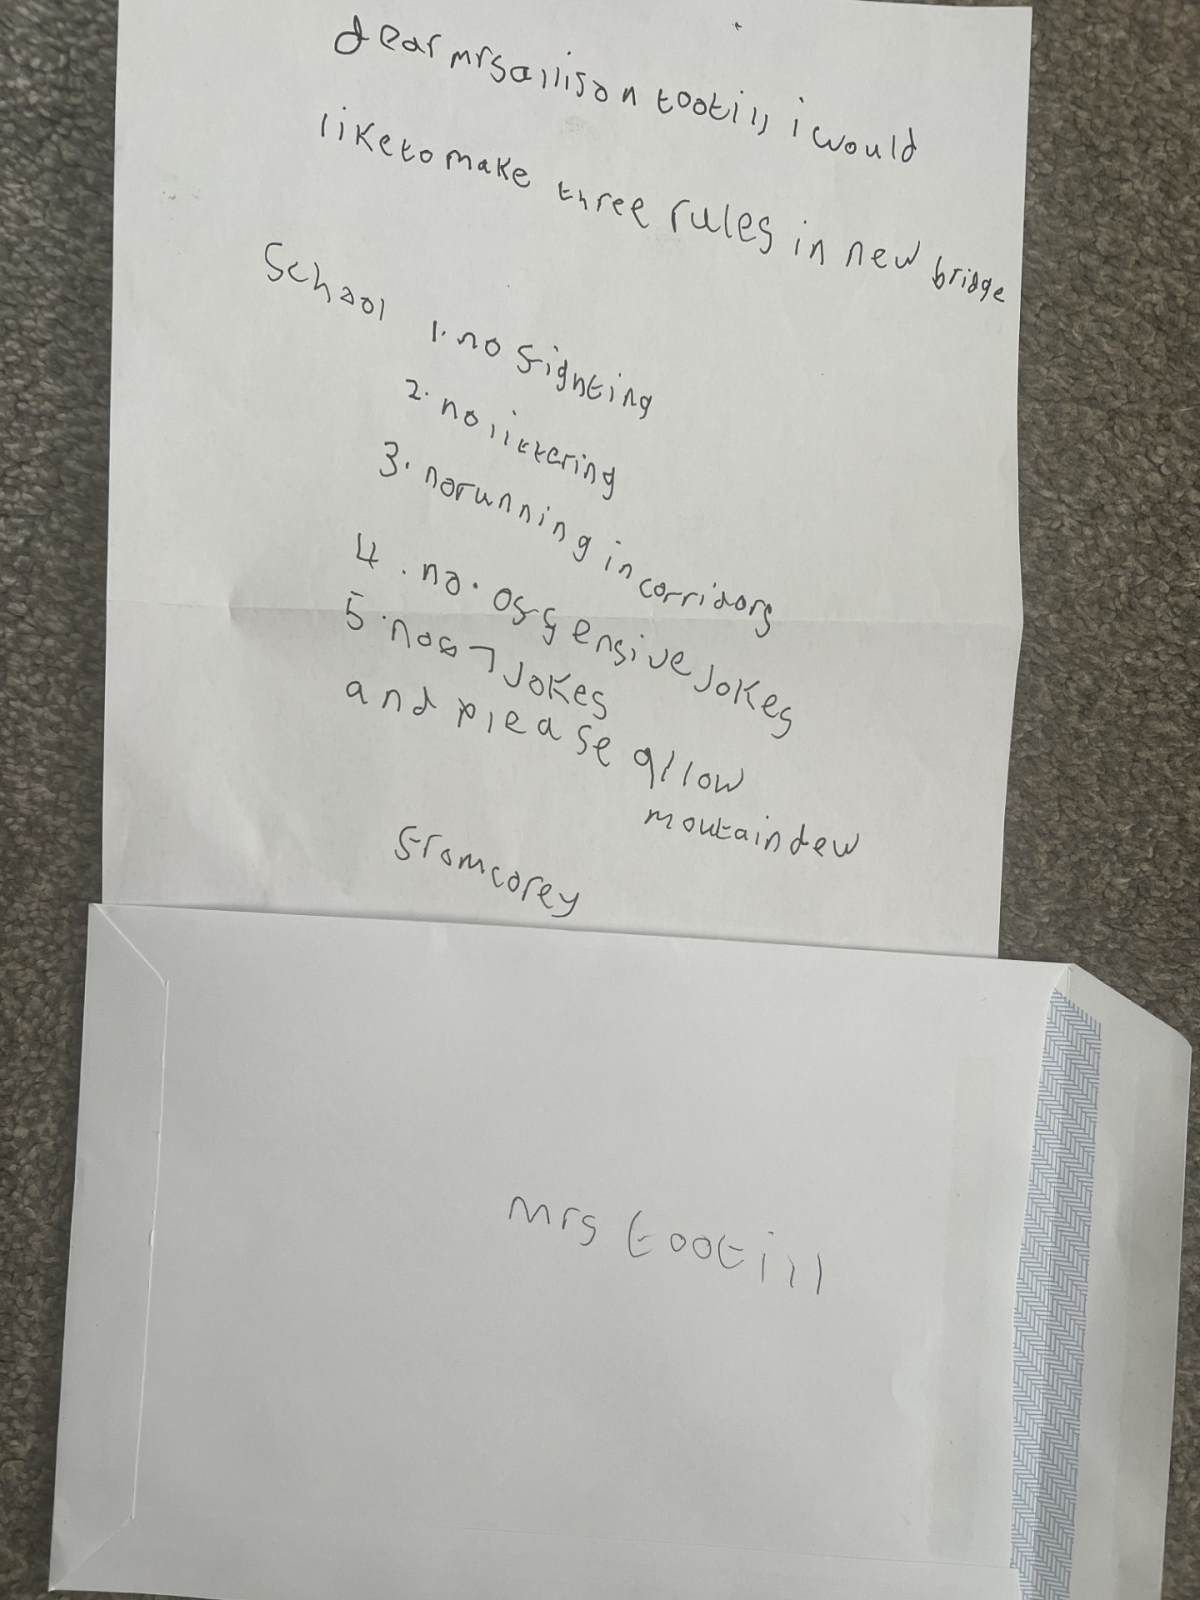 dear mrs allison tootill i would
like to make three rules in new bridge
School 1. no fighting
2. no littering
3. no running in corridors
4. no. offensive jokes
5. no 67 jokes
and please allow
moutain dew
from corey
mrs tootill